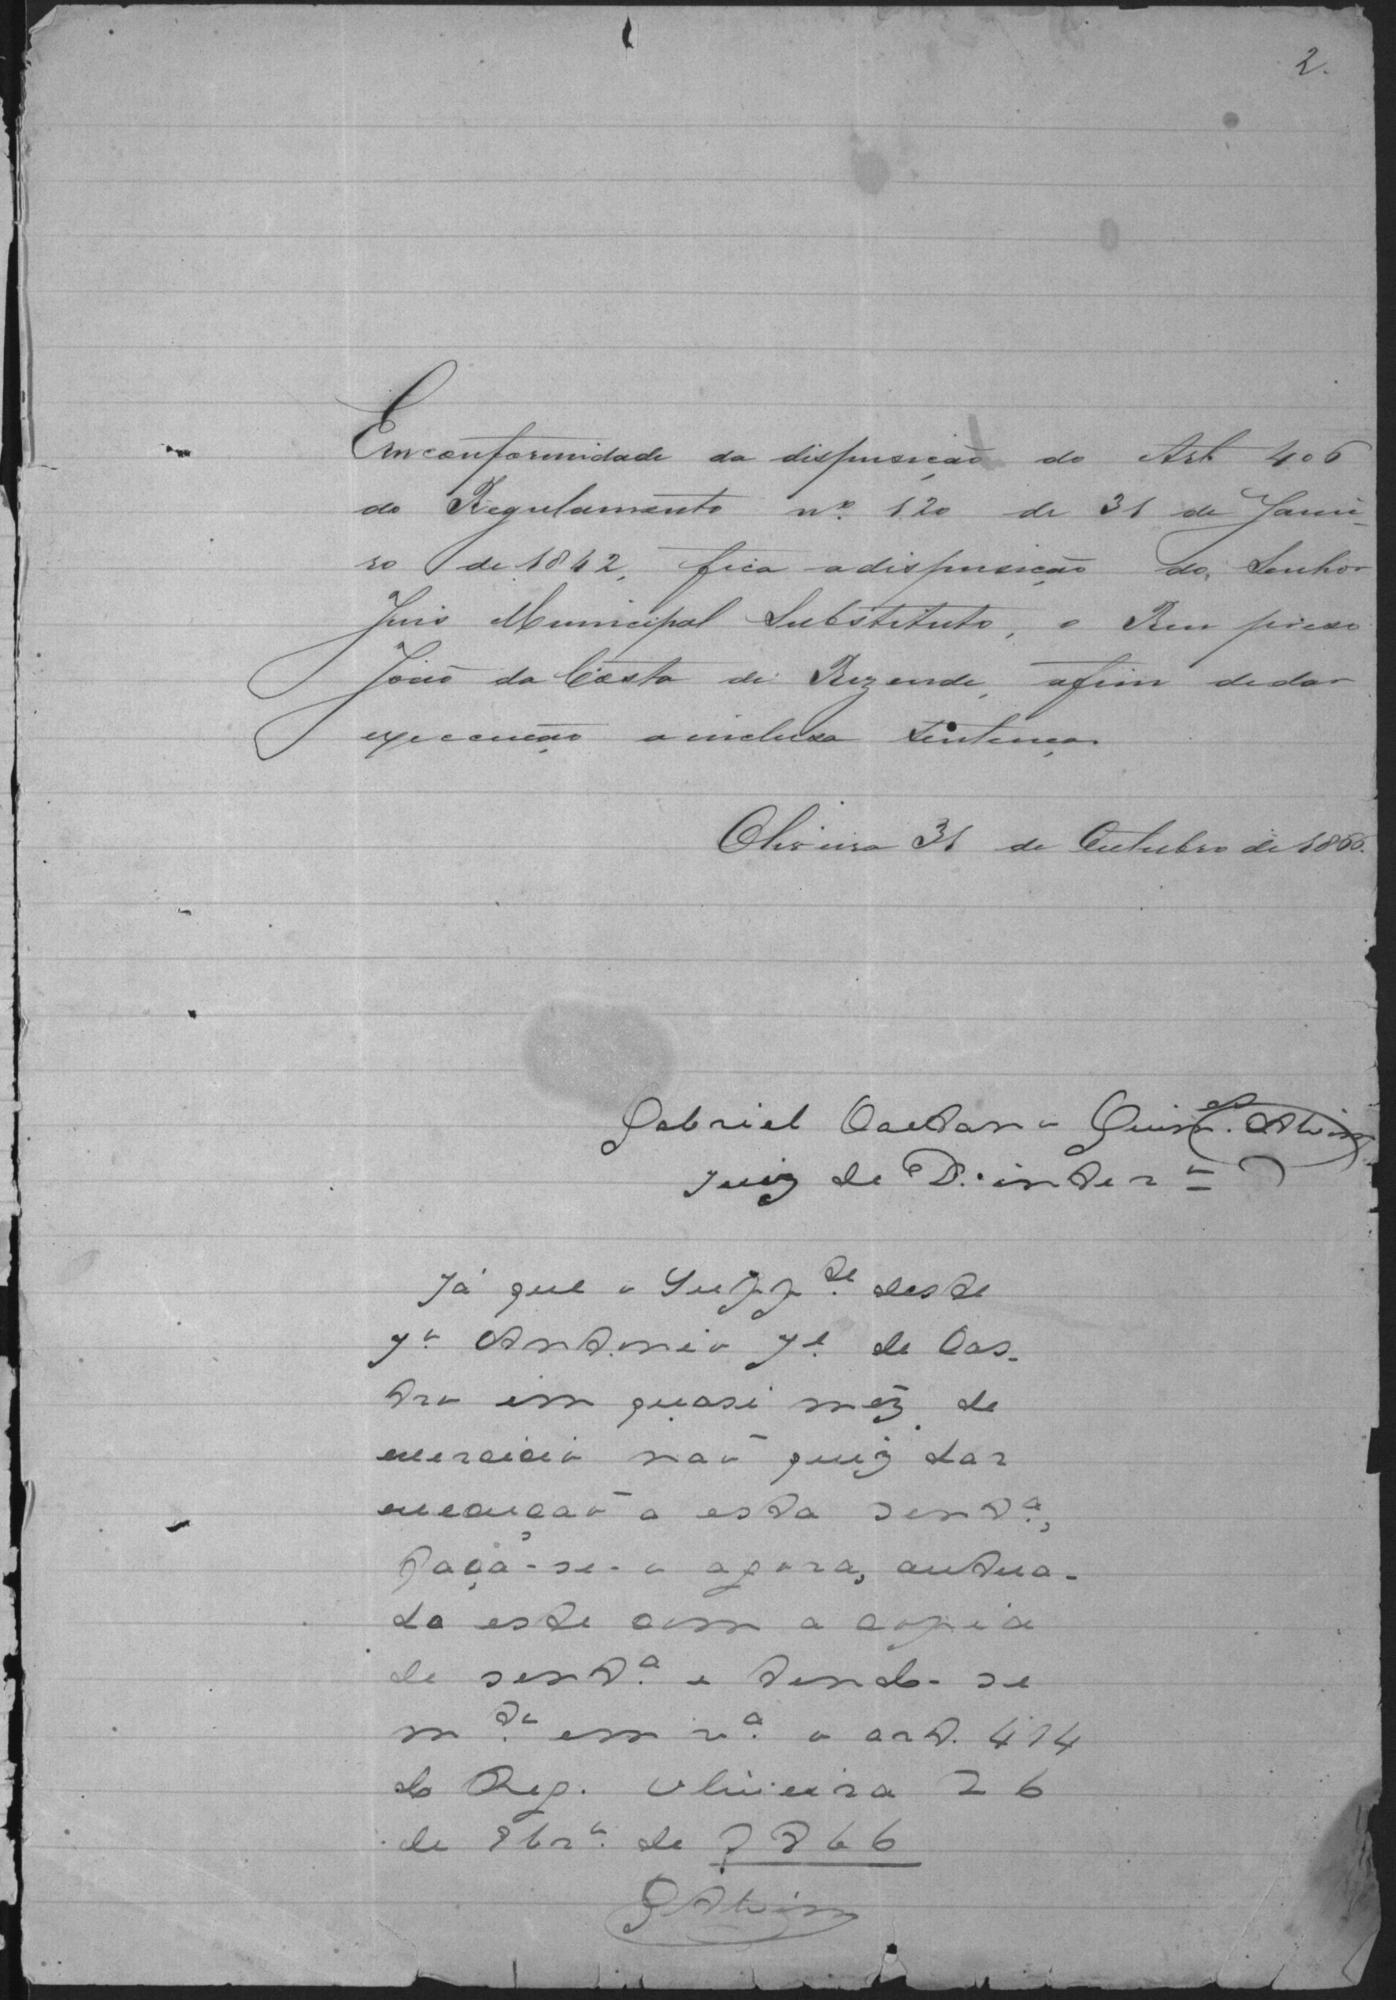 2.
Em conformidade da disposição do Art 406
do Regulamento nº. 120 de 31 de Janei-
ro de 1842, fica a disposição do Senhor
Juis Municipal Substituto, o Reu prezo
João da Costa de Rezende, afim de dar
execução a incluza Sentença.
Oliveira 31 de Outubro de 1866.
Gabriel Caetano Guim.es Alvim
Juiz de D. inter.º
Já que o Supp.te deste
Antonio de Cas-
tro em quasi mêz de
exercicio não quiz dar
execução a esta sent.ª,
faça-se-o agora, autua-
do este com a copia
de sent.ª e tendo-se
m.to em v.ª o art. 414
do Reg. Oliveira 26
de 9br.º de 1866
GAlvim